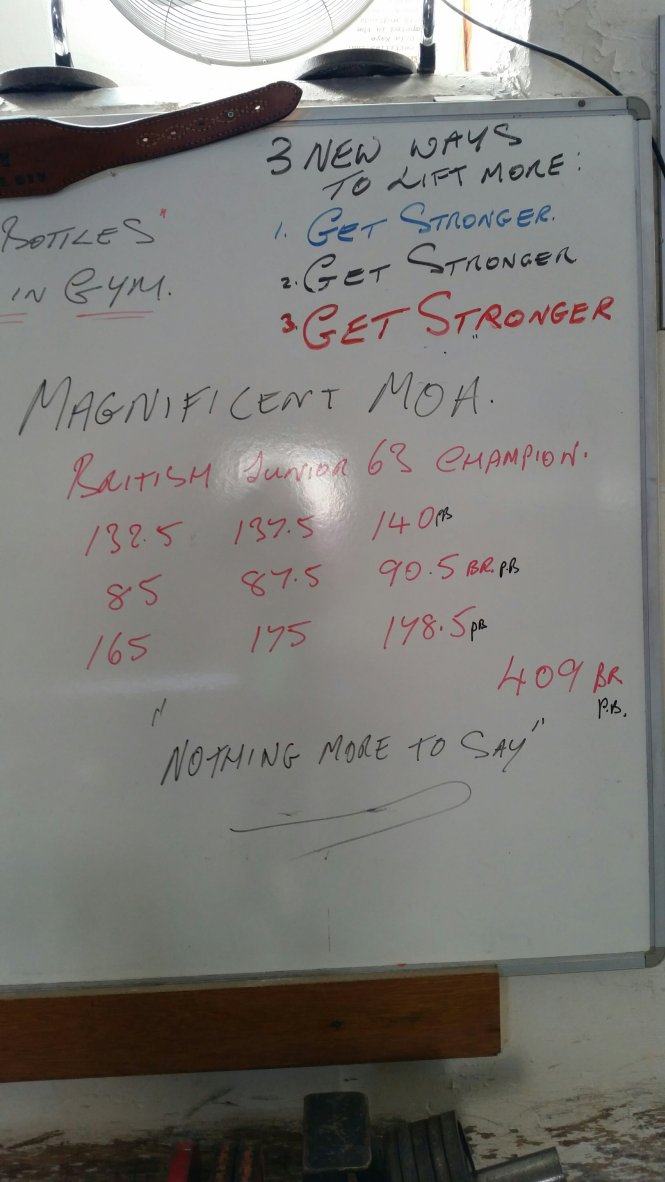 3 NEW WAYS
TO LIFT MORE:
1. GET STRONGER.
2. GET STRONGER
3. GET STRONGER
BOTTLES"
IN GYM.
MAGNIFICENT MOA.
BRITISH JUNIOR 63 CHAMPION.
132.5 137.5 140 PB
85 87.5 90.5 BR. P.B
165 175 178.5 PB
409 BR
P.B.
"NOTHING MORE TO SAY"